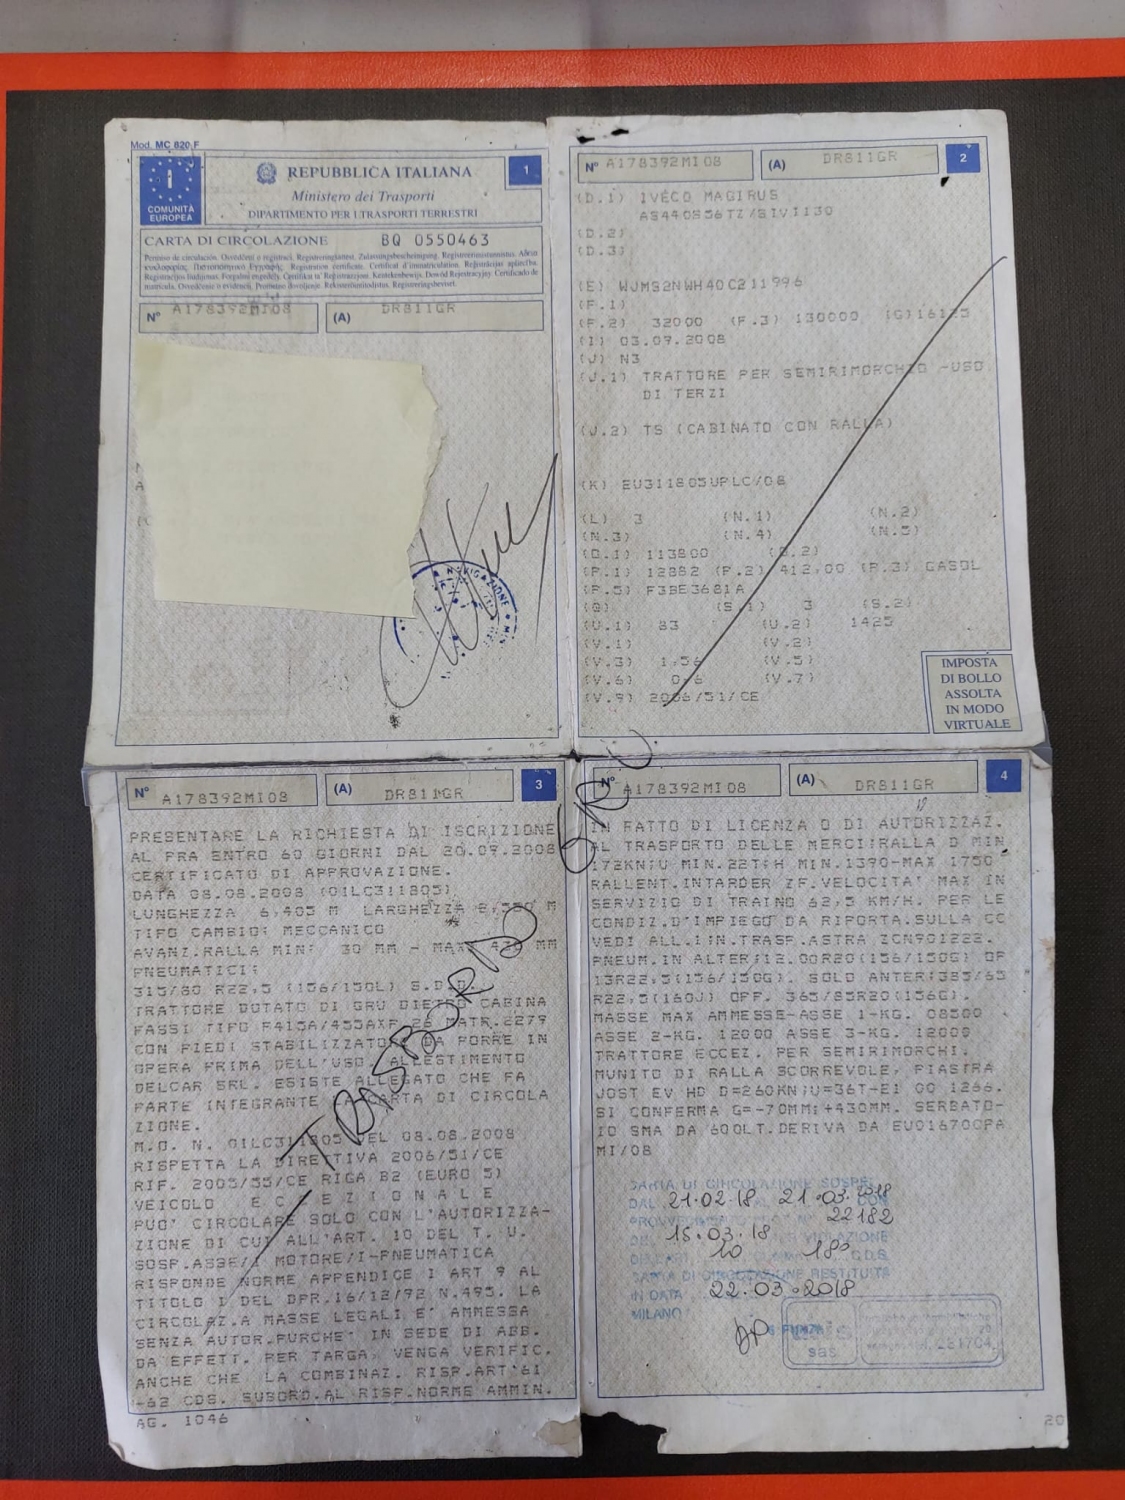 Mod. MC 820 F
COMUNITÀ
EUROPEA
REPUBBLICA ITALIANA
Ministero dei Trasporti
DIPARTIMENTO PER I TRASPORTI TERRESTRI
1
CARTA DI CIRCOLAZIONE BQ 0550463
N° A178392MI08 (A) DR811GR
N° A178392MI08 (A) DR811GR 2
(D.1) IVECO MAGIRUS
AS440S56TZ/
(D.2)
(D.3)
(E) WJMS2NWH40C211996
(F.1)
(F.2) 32000 (F.3) 130000 (G)
(I) 03.09.2008
(J) N3
(J.1) TRATTORE PER SEMIRIMORCHIO -USO
DI TERZI
(J.2) TS (CABINATO CON RALLA)
(K) EU311805UPLC/08
(L) 3 (N.1) (N.2)
(N.3) (N.4) (N.5)
(O.1) 113800 (O.2)
(P.1) 12882 (P.2) 412,00 (P.3) GASOL
(P.5) F3BE3681A
(Q) (S.1) 3 (S.2)
(U.1) 83 (U.2) 1425
(V.1) (V.2)
(V.3) 1,56 (V.5)
(V.6) 0,6 (V.7)
(V.9) 2006/51/CE
IMPOSTA
DI BOLLO
ASSOLTA
IN MODO
VIRTUALE
N° A178392MI08 (A) DR811GR 3
PRESENTARE LA RICHIESTA DI ISCRIZIONE
AL PRA ENTRO 60 GIORNI DAL 20.09.2008
CERTIFICATO DI APPROVAZIONE.
DATA 08.08.2008 (01LC311805)
LUNGHEZZA 6,405 M LARGHEZZA 2,550 M
TIPO CAMBIO: MECCANICO
AVANZ.RALLA MIN: 30 MM - MAX: 430 MM
PNEUMATICI:
315/80 R22,5 (156/150L) S.D.O.
TRATTORE DOTATO DI GRU DIETRO CABINA
FASSI TIPO F415A/455AXP 26 MATR.2279
CON PIEDI STABILIZZATORI DA PORRE IN
OPERA PRIMA DELL'USO ALLESTIMENTO
DELCAR SRL. ESISTE ALLEGATO CHE FA
PARTE INTEGRANTE LA CARTA DI CIRCOLA
ZIONE.
M.O. N. 01LC311805 DEL 08.08.2008
RISPETTA LA DIRETTIVA 2006/51/CE
RIF. 2005/55/CE RIGA B2 (EURO 5)
VEICOLO E C C E Z I O N A L E
PUO' CIRCOLARE SOLO CON L'AUTORIZZA-
ZIONE DI CUI ALL'ART. 10 DEL T. U.
SOSP.ASSE/I MOTORE/I-PNEUMATICA
RISPONDE NORME APPENDICE I ART 9 AL
TITOLO I DEL DPR.16/12/92 N.495. LA
CIRCOLAZ.A MASSE LEGALI E' AMMESSA
SENZA AUTOR.PURCHE' IN SEDE DI ABB.
DA EFFETT. PER TARGA, VENGA VERIFIC.
ANCHE CHE LA COMBINAZ. RISP.ART'61
-62 CDS. SUBORD.AL RISP.NORME AMMIN.
AG. 1046
TRASBORDO
N° A178392MI08 (A) DR811GR 4
IN FATTO DI LICENZA O DI AUTORIZZAZ.
AL TRASPORTO DELLE MERCI:RALLA D MIN
172KN:U MIN.22T:H MIN.1390-MAX 1750
RALLENT.INTARDER ZF.VELOCITA' MAX IN
SERVIZIO DI TRAINO 62,5 KM/H. PER LE
CONDIZ.D'IMPIEGO DA RIPORTA.SULLA CC
VEDI ALL.1:N.TRASP.ASTRA ZCN901222.
PNEUM.IN ALTER:12.00R20(156/150G) OP
13R22,5(156/150G). SOLO ANTER:385/65
R22,5(160J) OPP. 365/85R20(156G).
MASSE MAX AMMESSE-ASSE 1-KG. 08500
ASSE 2-KG. 12000 ASSE 3-KG. 12000
TRATTORE ECCEZ. PER SEMIRIMORCHI.
MUNITO DI RALLA SCORREVOLE, PIASTRA
JOST EV HD D=260KN:U=36T-E1 00 1266.
SI CONFERMA G=-70MM:+430MM. SERBATO-
IO SMA DA 600LT.DERIVA DA EU01670CPA
MI/08
CARTA DI CIRCOLAZIONE SOSPESA
DAL 21.02.18 AL 21.03.2018 CON
22182
DEL 15.03.18 VIOLAZIONE
DELL'ART. 10 18° C.D.S.
CARTA DI CIRCOLAZIONE RESTITUITA
IN DATA 22.03.2018
MILANO
sas